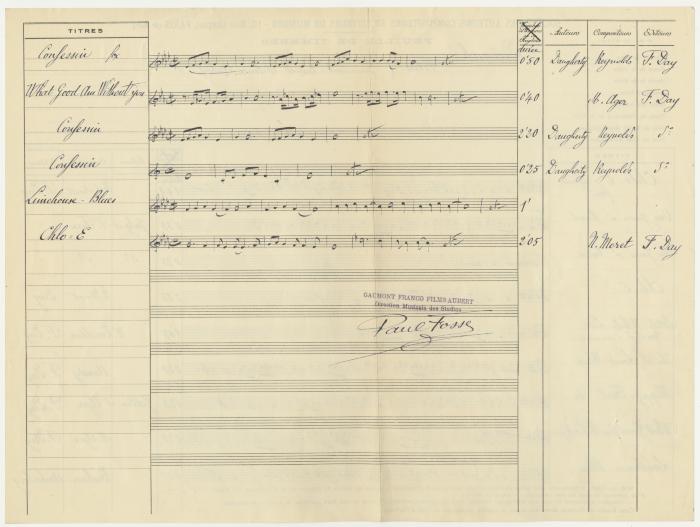 TITRES Durée Auteurs Compositeurs Editeurs
Confessin fox 0'50 Daugherty Reynolds F. Day
What Good Am I Without you 0'40 M. Ager F. Day
Confessin 2'20 Daugherty Reynolds d°
Confessin 0'25 Daugherty Reynolds d°
Limehouse-Blues 1'
Chlo-E 2'05 N. Moret F. Day
GAUMONT FRANCO FILMS AUBERT
Direction Musicale des Studios
Paul Fosse